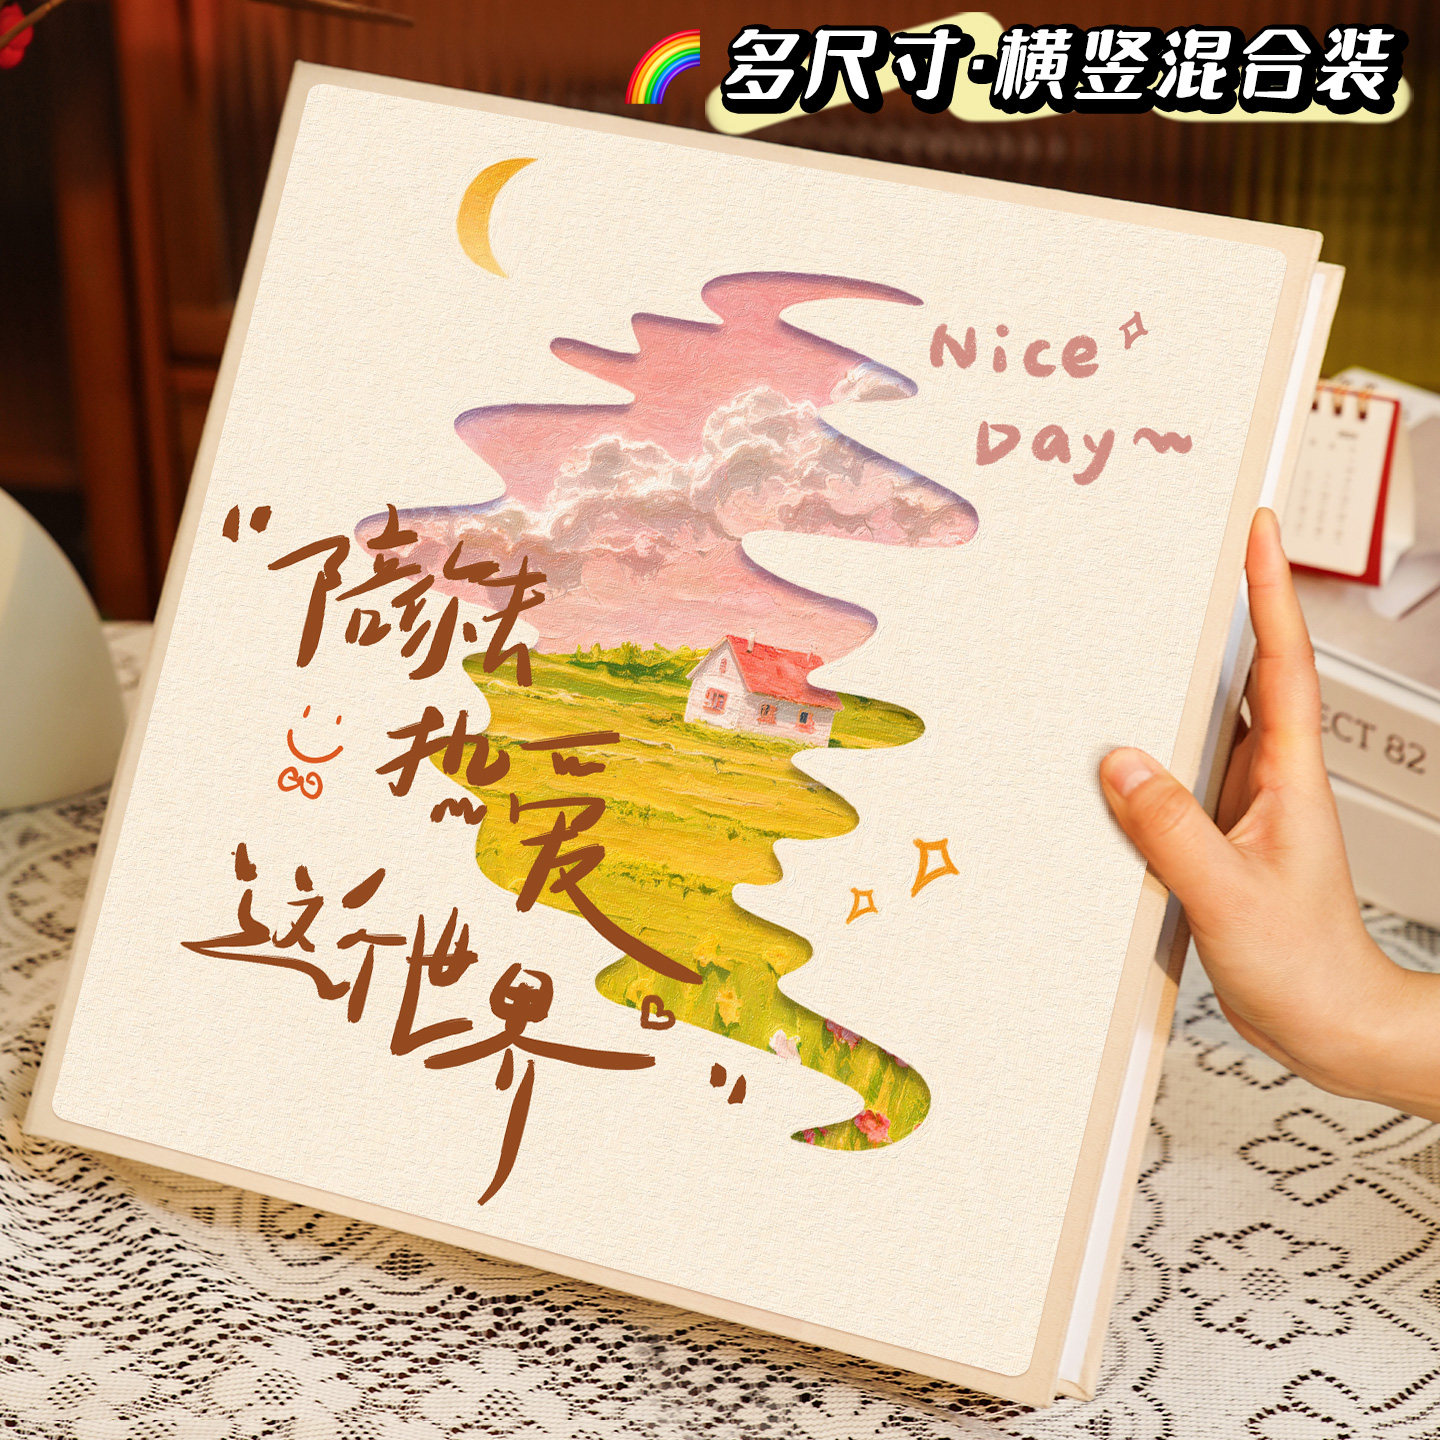 多尺寸·横竖混合装
Nice
Day~
“陪你去
热爱
这个世界”
ECT 82